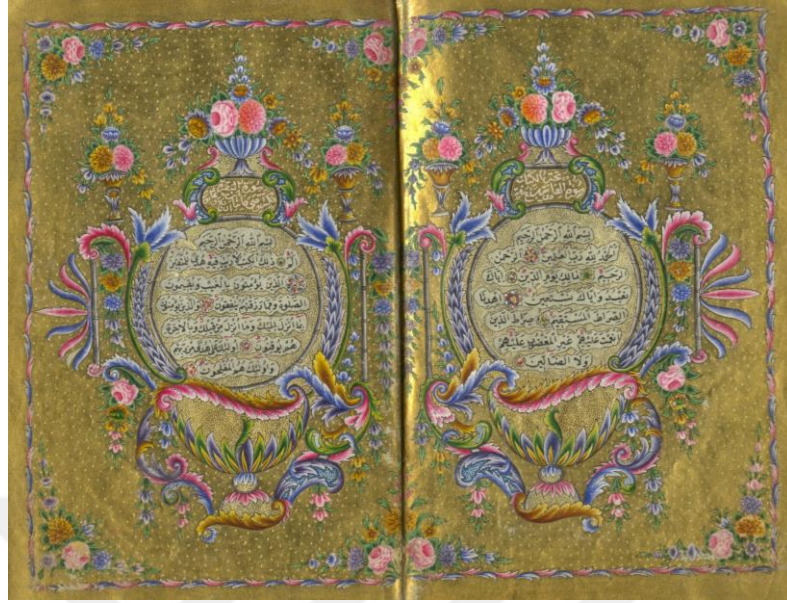 بِسْمِ اللهِ الرَّحْمٰنِ الرَّحِيمِ
اَلْحَمْدُ لِلّٰهِ رَبِّ الْعَالَمِينَ اَلرَّحْمٰنِ
الرَّحِيمِ مَالِكِ يَوْمِ الدِّينِ اِيَّاكَ
نَعْبُدُ وَاِيَّاكَ نَسْتَعِينُ اِهْدِنَا
الصِّرَاطَ الْمُسْتَقِيمَ صِرَاطَ الَّذِينَ
اَنْعَمْتَ عَلَيْهِمْ غَيْرِ الْمَغْضُوبِ عَلَيْهِمْ
وَلَا الضَّالِّينَ
بِسْمِ اللهِ الرَّحْمٰنِ الرَّحِيمِ
الٓمٓ ذٰلِكَ الْكِتَابُ لَا رَيْبَ فِيهِ هُدًى لِلْمُتَّقِينَ
اَلَّذِينَ يُؤْمِنُونَ بِالْغَيْبِ وَيُقِيمُونَ
الصَّلٰوةَ وَمِمَّا رَزَقْنَاهُمْ يُنْفِقُونَ وَالَّذِينَ يُؤْمِنُونَ
بِمَا اُنْزِلَ اِلَيْكَ وَمَا اُنْزِلَ مِنْ قَبْلِكَ وَبِالْاٰخِرَةِ
هُمْ يُوقِنُونَ اُولٰئِكَ عَلٰى هُدًى مِنْ رَبِّهِمْ
وَاُولٰئِكَ هُمُ الْمُفْلِحُونَ